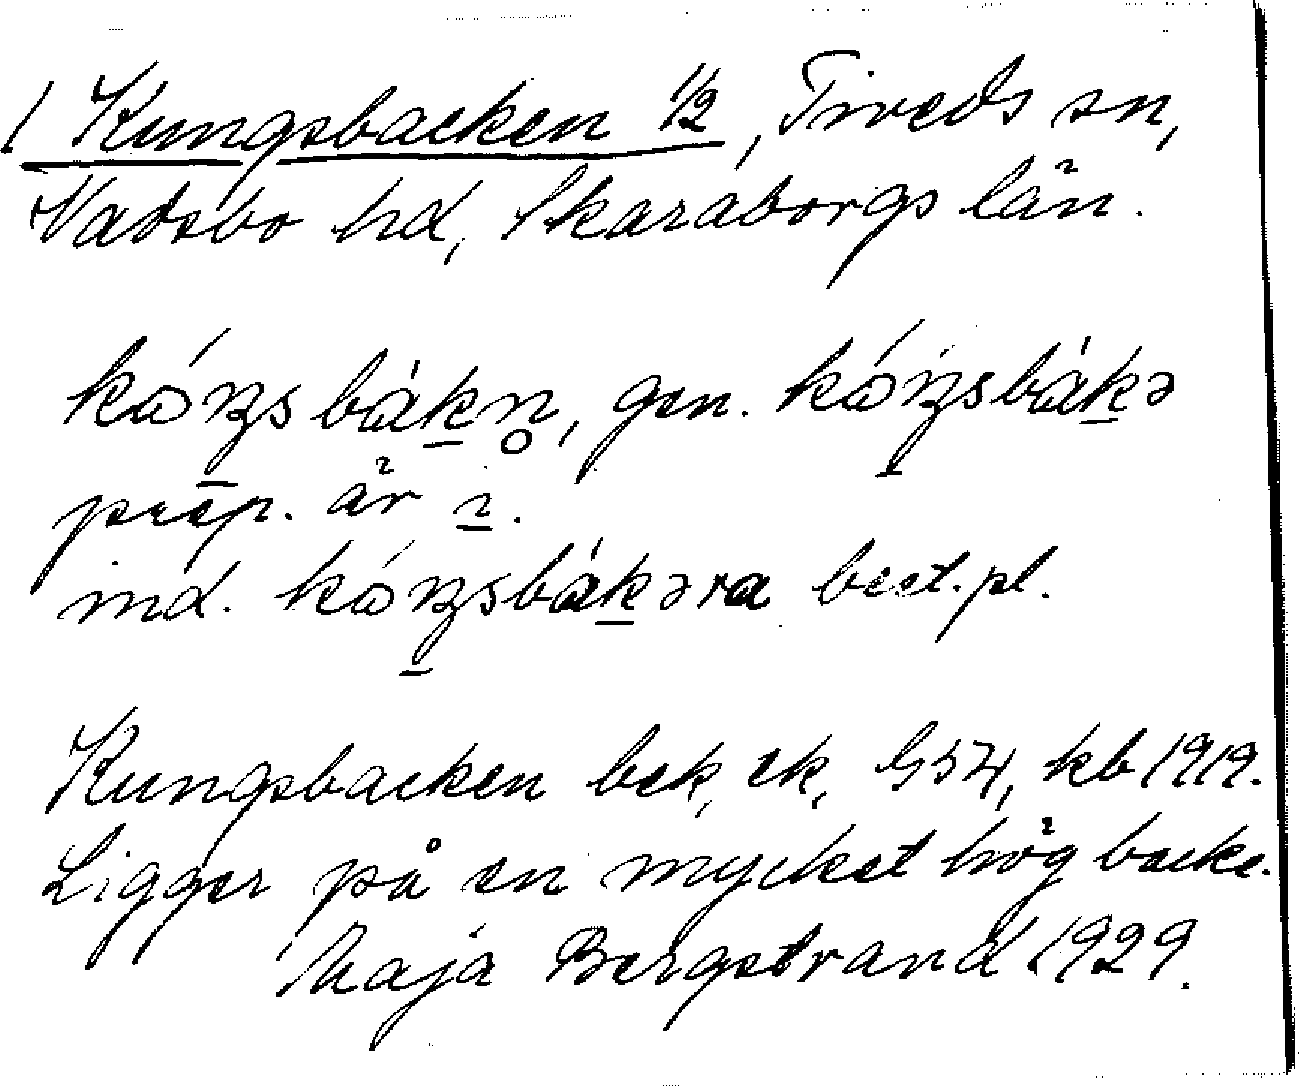 1 Kungsbacken 1/2, Tiveds sn,
Vadsbo hd, Skaraborgs län.
kóŋsbákn̥, gen. kóŋsbákə
prep. är i.
ind. kóŋsbákəra best. pl.
Kungsbacken bek, ek, G54, kb 1919.
Ligger på en mycket hög backe.
Maja Bergstrand 1929.